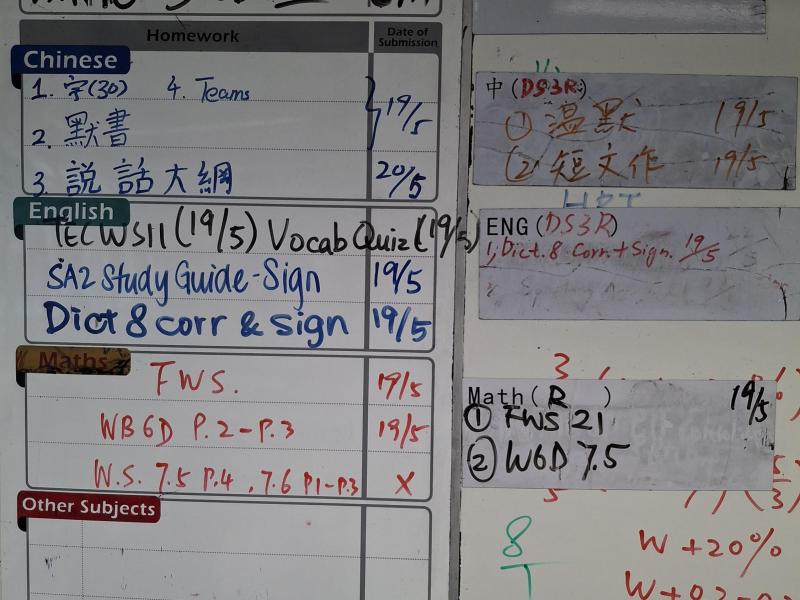 Homework
Date of Submission
Chinese
1. 字(30) 4. Teams
2. 默書
19/5
3. 說話大網
20/5
English
TECWS11 (19/5) Vocab Quiz (19/5)
SA2 Study Guide-Sign 19/5
Dict 8 corr & sign 19/5
Maths
FWS. 19/5
WB6D P.2-P.3 19/5
W.S. 7.5 P.4, 7.6 P1-P.3 X
Other Subjects
中(DS3R)
① 溫默 19/5
② 短文作 19/5
ENG(DS3R)
1, Dict. 8 Corr. + Sign. 19/5
Math( R )
19/5
① FWS 21
② W6D 7.5
3
5
(3)
8
1
W +20%